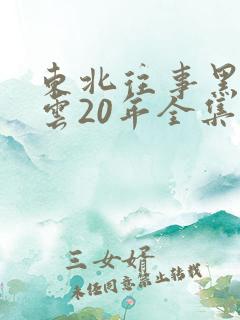 東北往事黑
雲20年全集
三女婿
未经同意禁止转载